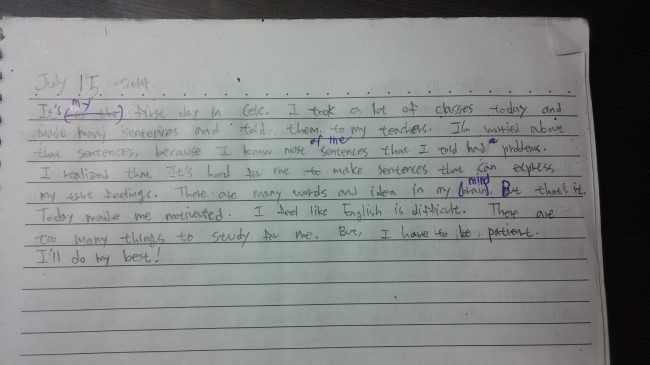 July 15 2014
It's (as the) my first day in Celc. I took a lot of classes today and
made many sentences and told them to my teachers. I'm worried about
that sentences, because I know most of the sentences that I told had a problems.
I realized that It's hard for me to make sentences that can express
my true feelings. There are many words and idea in my (brain) mind, But that's it.
Today made me motivated. I feel like English is difficult. There are
too many things to study for me. But, I have to be patient.
I'll do my best!